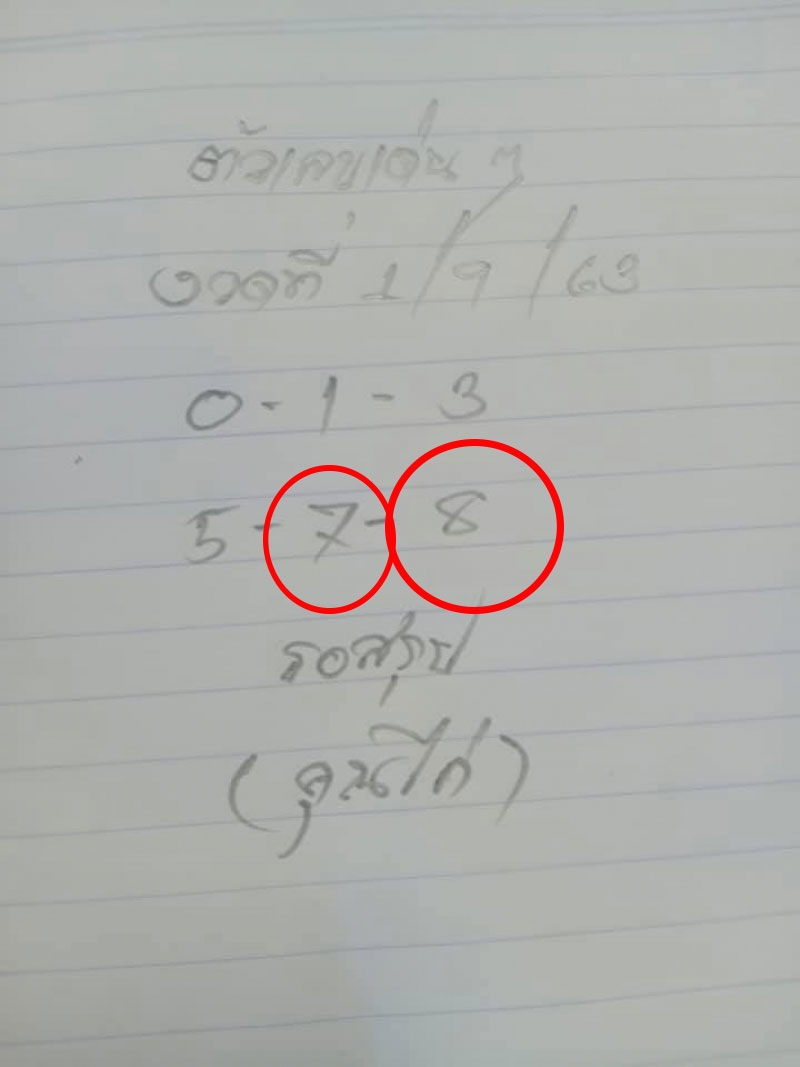 ตัวเลขเด่น ๆ
งวดที่ 1/9/63
0-1-3
5-7-8
รอสรุป
(คุณไก่)